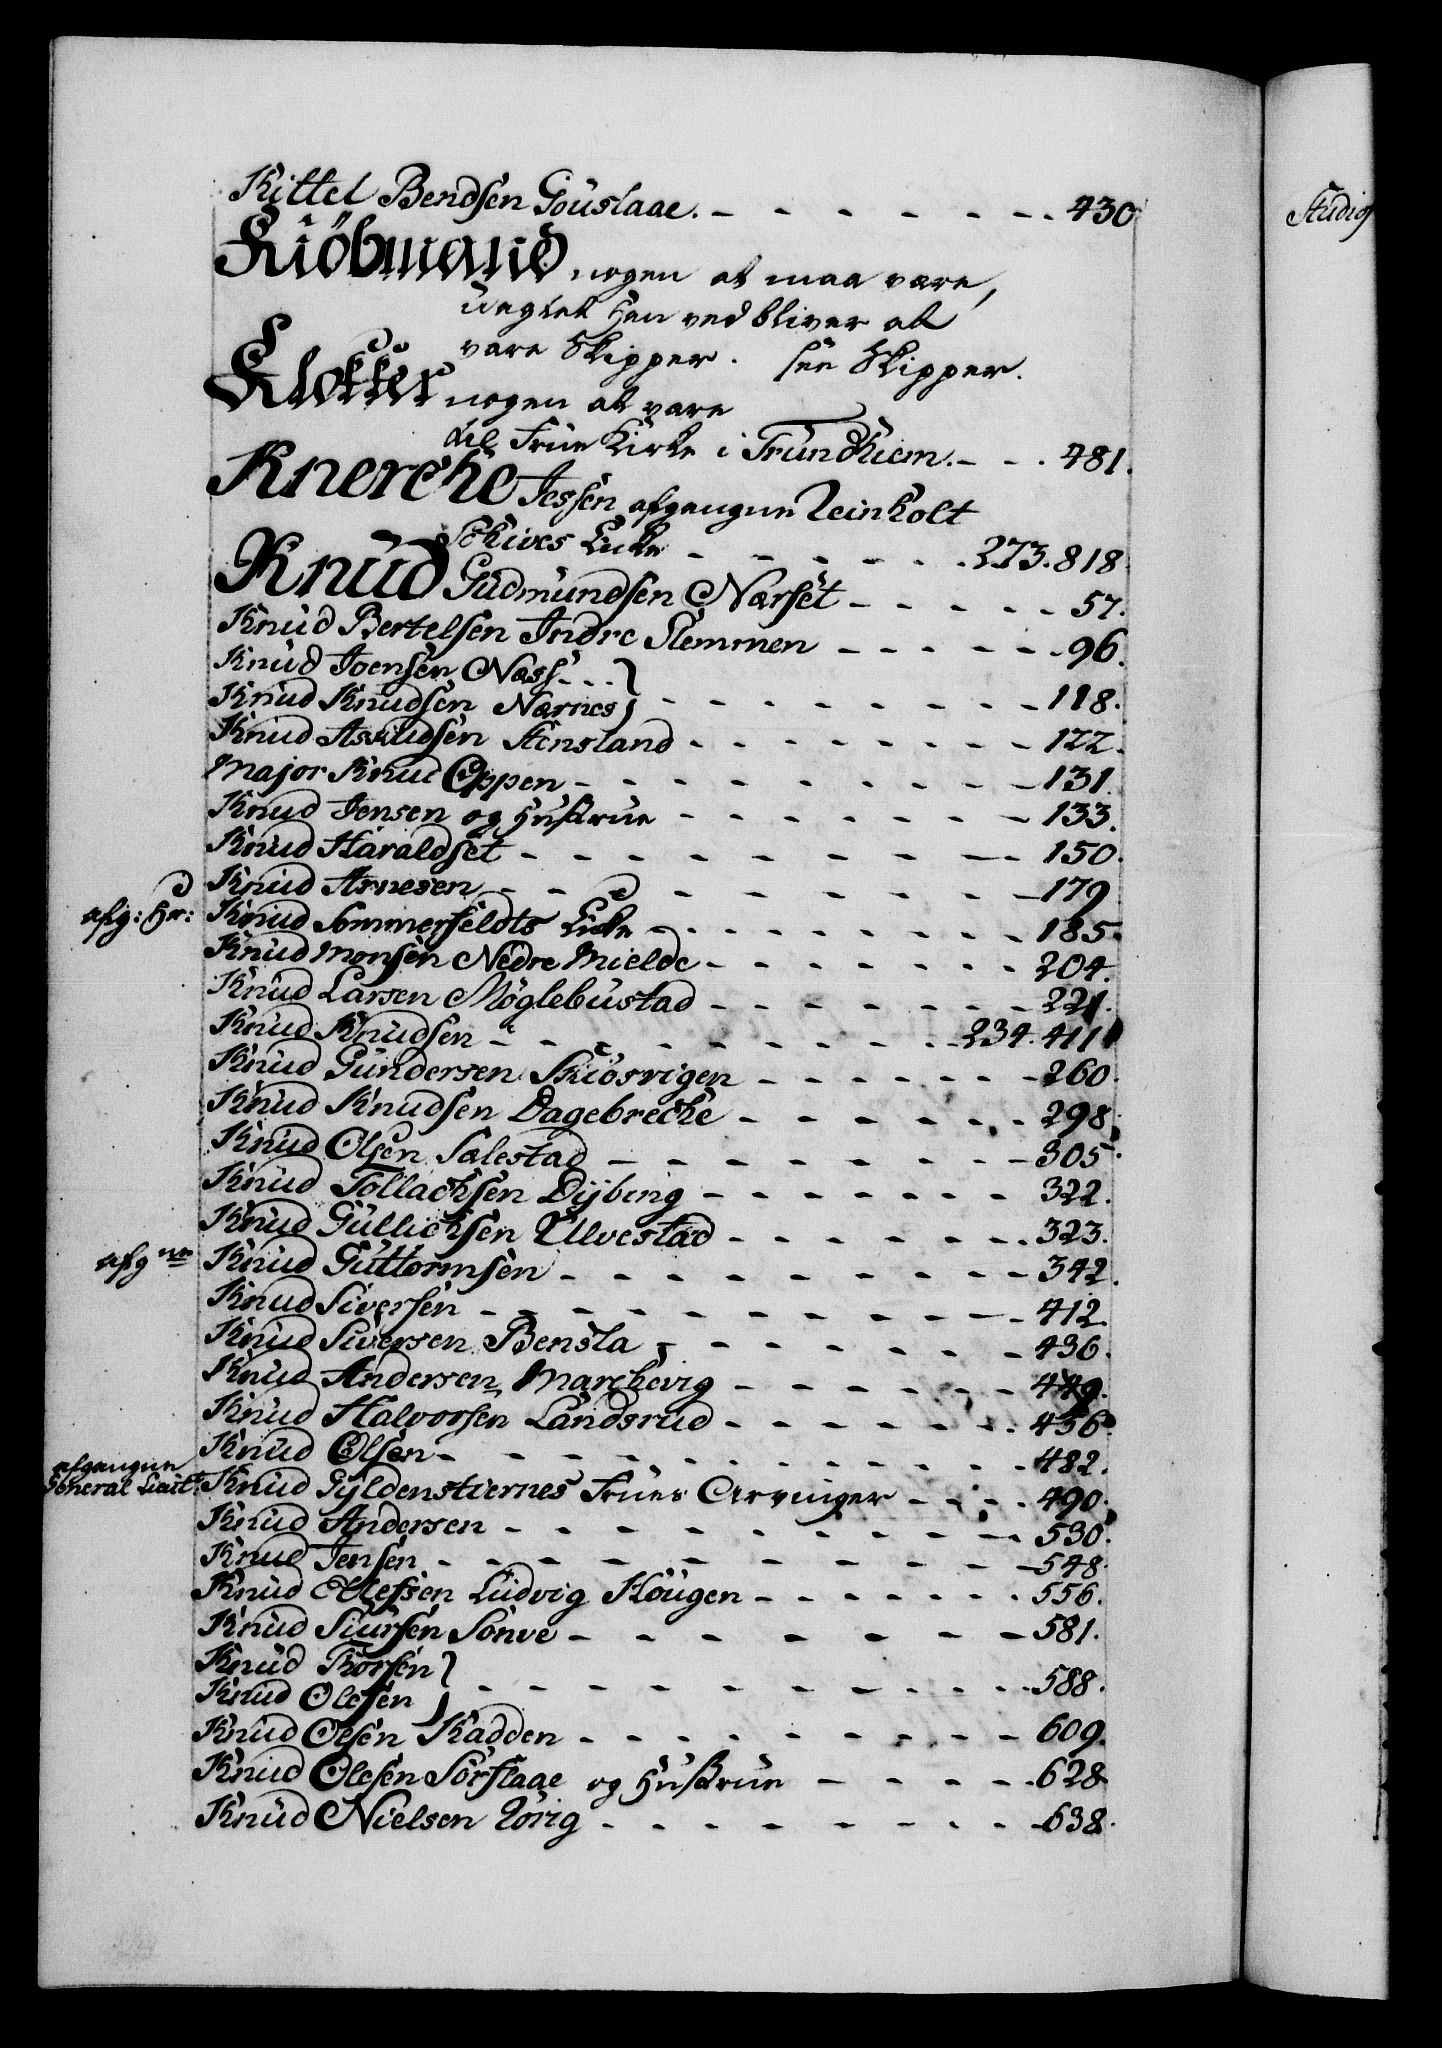 Kittel Bendsen Gouslaae. - - - - - - - 430
Kiöbmand nogen at maa være,
uagtet han ved bliver at
være Skipper. See Skipper.
Klokker nogen at være
til Frue Kirke i Trundhiem. - - . 481.
Knerche Jessen afgangne Reinholt
Schives Enke - - - - - - . 273. 818.
Knud Gudmundsen Nærset - - - - - 57.
Knud Bertelsen Indre Slemmen - - - - - - 96.
Knud Joensen Næss . . . }
Knud Knudsen Nærnes } - - - - - - - - - 118.
Knud Asludsen Stensland - - - - - - - - 122.
Major Knud Oppen - - - - - - - - - 131.
Knud Jensen og Hustrue - - - - - - - 133.
Knud Haraldset - - - - - - - - - 150.
Knud Arnesen - - - - - - - - - 179
afg: Hr: Knud Sommerfeldts Enke - - - - - - - - 185.
Knud Monsen Nedre Mielde - - - - - - - 204.
Knud Larsen Möglebustad - - - - - - - 221.
Knud Knudsen - - - - - - - - 234. 411
Knud Gundersen Skiösvigen - - - - - - - 260.
Knud Knudsen Dagebrecke - - - - - - - 298.
Knud Olsen Salestad - - - - - - - - 305.
Knud Tollachsen Dyberg - - - - - - - 322.
Knud Gullichsen Ulvestad - - - - - - - 323.
afgne Knud Guttormsen - - - - - - - - - 342.
Knud Siversen - - - - - - - - - - 412.
Knud Siversen Bensla - - - - - - - - 436.
Knud Andersen Marchevig - - - - - - - 449.
Knud Halvorsen Landsrud - - - - - - - 456.
Knud Olsen - - - - - - - - - - 482.
afgangne
General Lieut: Knud Gyldenstiernes Frues Arvinger - - - - 490.
Knud Andersen - - - - - - - - - - 530.
Knud Jensen - - - - - - - - - - - 548.
Knud Olefsen Ludvig Hougen - - - - - - - 556.
Knud Siursen Sönve - - - - - - - - 581.
Knud Thorsen }
Knud Olefsen } - - - - - - - - - - - 588.
Knud Olsen Kadden - - - - - - - - - 609.
Knud Olesen Sörflaae og Hustrue - - - - - 628.
Knud Nielsen Rörig - - - - - - - - - 638.